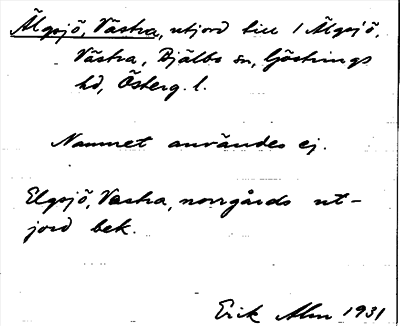 Älgsjö, Västra, utjord till 1 Älgsjö,
Västra, Bjälbo sn, Göstrings
hd, Österg. l.
Namnet användes ej.
Elgsjö, Vestra, norrgårds ut-
jord bek.
Erik Alm 1931